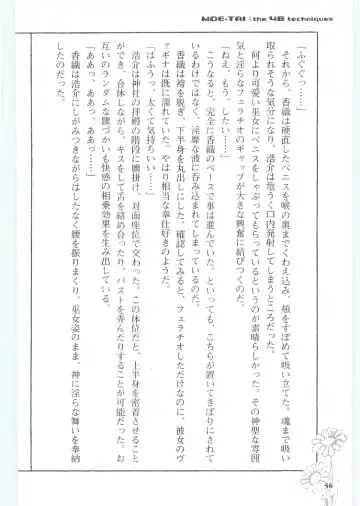 MOE-TAI : the 48 techniques
「ふぐぐっ……」
　それから、香織は硬直したペニスを喉の奥までくわえ込み、頬をすぼめて吸い立てた。魂まで吸い
取られそうな気分になり、浩介は危うく口内発射してしまうところだった。
　何より可愛い巫女にペニスをしゃぶってもらっているというのが素晴らしかった。その神聖な雰囲
気と淫らなフェラチオのギャップが大きな興奮に結びつくのだ。
「ねえ、もう、したい……」
　こうなると、完全に香織のペースで事は進んでいた。といっても、こちらが置いてきぼりにされて
いるわけではなく、淫靡な波に呑み込まれてしまっているのだ。
　香織は袴を脱ぎ、下半身を丸出しにした。確認してみると、フェラチオしただけなのに、彼女のヴ
ァギナは既に濡れていた。やはり相当な奉仕好きのようだ。
「はふうっ、太くて気持ちいい……」
　浩介は神社の拝殿の階段に腰掛け、対面座位で交わった。この体位だと、上半身を密着させること
ができ、合体しながら、キスをして舌を絡め合ったり、バストを弄んだりすることが可能だった。お
互いのランダムな腰づかいも快感の相乗効果を生み出している。
「ああっ、あぁっ、ああっ……」
　香織は浩介にしがみつきながらはしたなく腰を振りまくり、巫女姿のまま、神に淫らな舞いを奉納
したのだった。
56